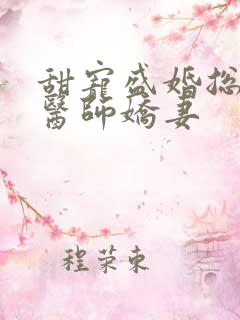 甜寵盛婚总
醫師嬌妻
程荣東